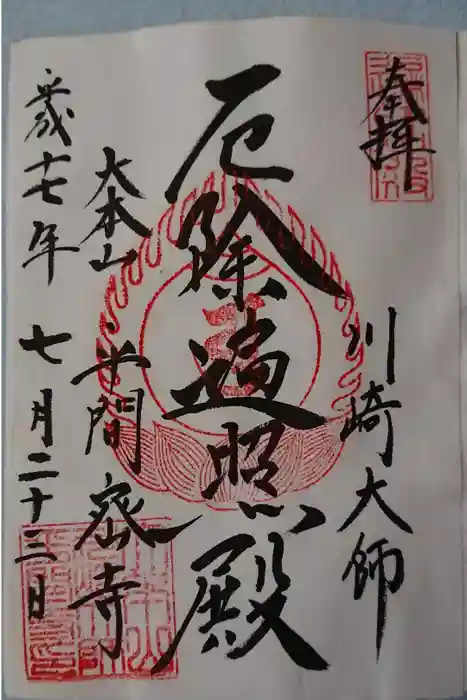 奉拝
川崎大師
厄除遍照殿
大本山
平間密寺
平成十七年 七月二十三日